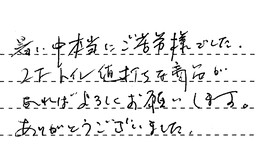 暑い中本当にご苦労様でした.
又トイレ値打ちな商品が
あればよろしくお願いします。
ありがとうございました.